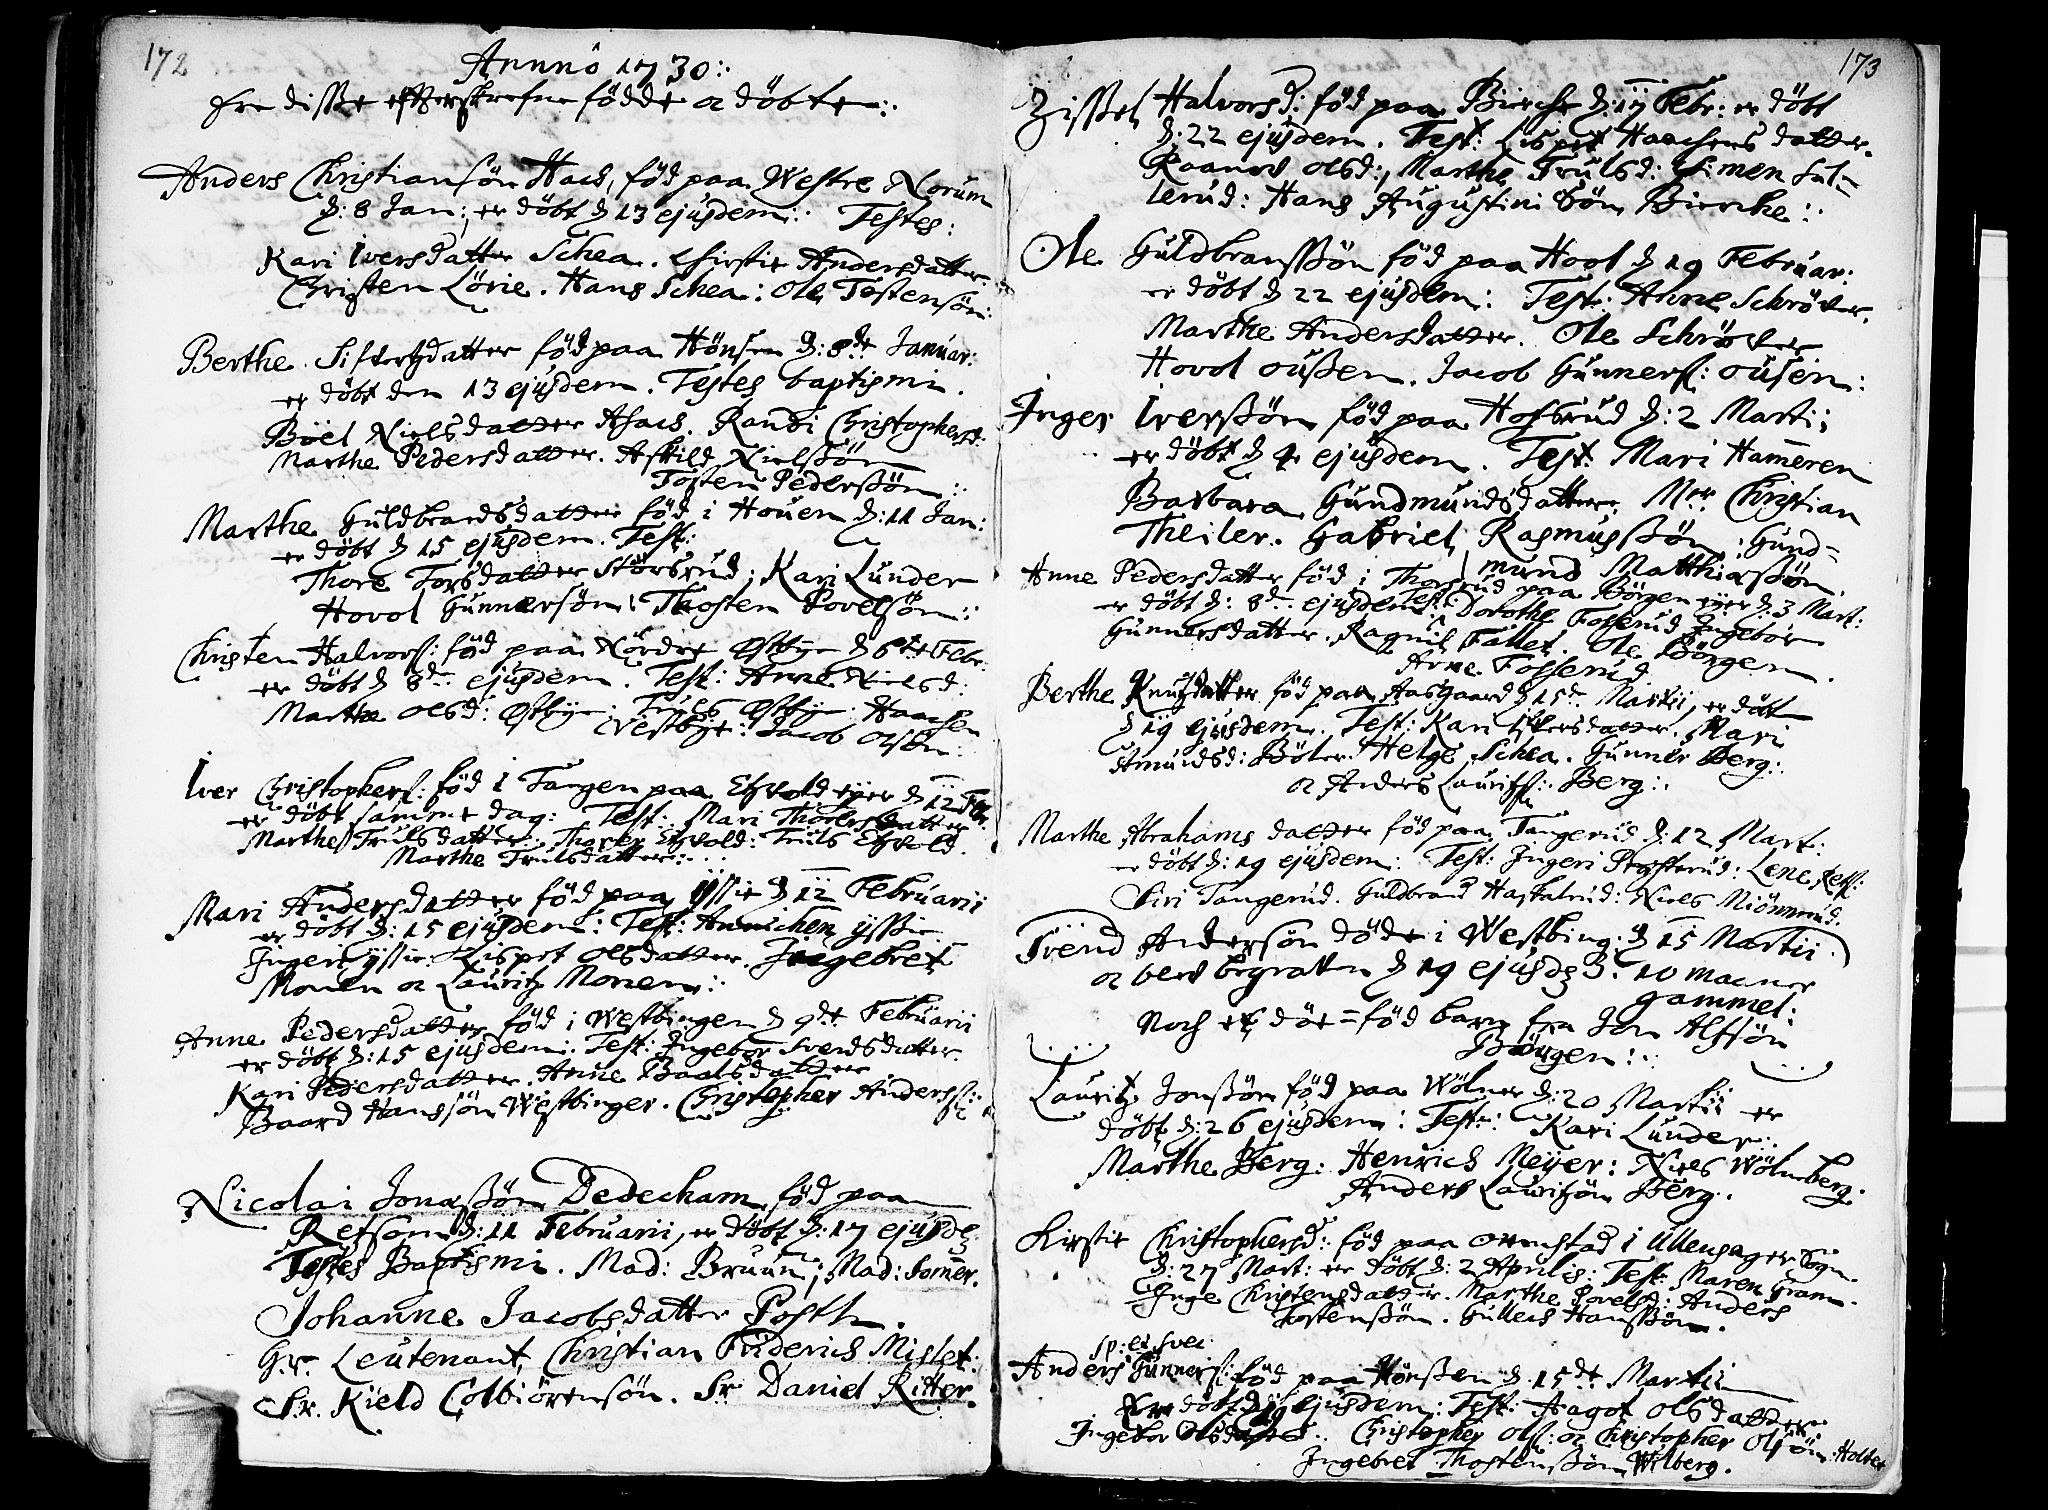 172
Annno 1730:
Ere disse efterskrefne födde oc döbte:
Anders Christiansön Hach, föd paa Westre Norum
d: 8 Jan:, er döbt d 13 ejusdem: Testes:
Kari Iversdatter Schea. Chirstie Andersdatter.
Christen Lörie. Hans Schea: Ole Tostensön:
Berthe Sifversdatter föd paa Hönsen d: 8de Januar:
er döbt den 13 ejusdem. Testes baptismi.
Böel Nielsdatter Asach. Randi Christophersd:
Marthe Pedersdatter. Askild Nielssön
Tosten Pederssön:
Marthe Guldbrandsdatter föd i Houen d: 11 Jan:
er döbt d 15 ejusdem. Test:
Thore Torsdatter Störsrud; Kari Lunder
Hovol Gunnersön. Thosten Povelsön:
Christen Halvors: föd paa Nördre Østbye d 6te Febr:
er döbt d 8de ejusdem. Test: Anne Nielsd:
Marthe Olsd: Østbye: Truls Østbye. Haachen
Vestbye: Jacob Olsön:
Iver Christophers: föd i Tangen paa Etzvold eyer d 12 Febr.
er döbt samme dag: Test: Mari Thorersdatter
Marthe Trulsdatter. Thorer Etzvold: Truls Etzvold.
Marthe Trulsdatter:
Mari Andersdatter föd paa Yssie d 12 Februarii
er döbt d: 15 ejusdem: Test: Annichen Yssie
Ingeri Yssie. Lispet Olsdatter. Ingebret
Monen oc Lauritz Monen:
Anne Pedersdatter föd i Westbingen d 9de Februarii
er döbt d: 15 ejusdem: Test: Ingebor Svendsdatter
Kari Pedersdatter. Anne Baalsdatter
Baard Hanssön Westbinger. Christopher Anderss:
Nicolai Jonassön Dedecham föd paa
Refsom d: 11 Februarii, er döbt d: 17 ejusd:
Testes Baptismi. Mad: Bruun; Mad: Sommer.
Johanne Jacobsdatter Posth.
Hr. Leutenant Christian Friderich Mislet:
Sr. Kield Colbiörensön. Sr. Daniel Ritter.
173
Zissel Halvorsd: föd paa Bierche d: 17 Febr: er döbt
d: 22 ejusdem. Test: Lispet Haachensdatter.
Raanov Olsd:, Marthe Trulsd: Simen Sul-
lerud: Hans Augustini Sön Bierche:
Ole Guldbranssön föd paa Hool d 19 Februar:
er döbt d 22 ejusdem: Test: Anne Schröder.
Marthe Andersdatter. Ole Schröder
Hovol Oussen. Jacob Gunners: Ousen:
Inger Iverssön föd paa Hofsrud d: 2 Marti:
er döbt d 4 ejusdem. Test: Mari Hammeren
Barbara Gundmundsdatter. Mer Christian
Theiler. Gabriel Rasmussön: Gund-
mund Matthiassön
Anne Pedersdatter föd i Thorsrud paa Börgen eyer d: 3 Mart:
er döbt d: 8de ejusdem: Test: Dorothe Fosserud Ingebor
Gunnersdatter. Ragnil Fallet. Ole Börgen.
Arne Fosserud
Berthe Knudsdatter föd paa Aasgaard d 15de Martii, er döbt
d 19 ejusdem. Test: Kari Iversdatter. Mari
Amundsd: Böler. Helge Schea. Gunner Berg:
oc Anders Lauritss: Berg:
Marthe Abrahamsdatter föd paa Tangerud d: 12 Mart:
er döbt d: 19 ejusdem: Test: Ingeri Prosterud: Lene
Siri Tangerud. Guldbrand Haslerud: Niels Miönnerud.
Trend Andersön döde i Westbing: d 15 Martii
oc blev begraven d 19 ejusd: 10 maaner
gammel:
Noch et döe=föd barn fra Jon Alfsön
Börgen:
Lauritz Jonssön föd paa Wölner d: 20 Martii er
döbt d: 26 ejusdem: Test: Kari Lunder:
Marthe Berg: Henrich Meyer: Niels Wölnberg.
Anders Lauritsön Berg:
Kirstie Christophersd: föd paa Ormstad i Ullensager Sogn.
d: 27 Mart: er döbt d: 2 Aprilis: Test: Maren Gram.
Inge Christensdatter. Marthe Povelsd: Anders
Tostenssön. Gulich Hanssön.
sp: ex Svec:
Anders Gunners: föd paa Hönssen d. 15de Martii
er döbt d 19 ejusdem: Test: Aagot Olsdatter
Ingebor Olsdatter. Christopher Ols: oc Christopher Olsön Holter
Ingebret Thostenssön Wilberg.